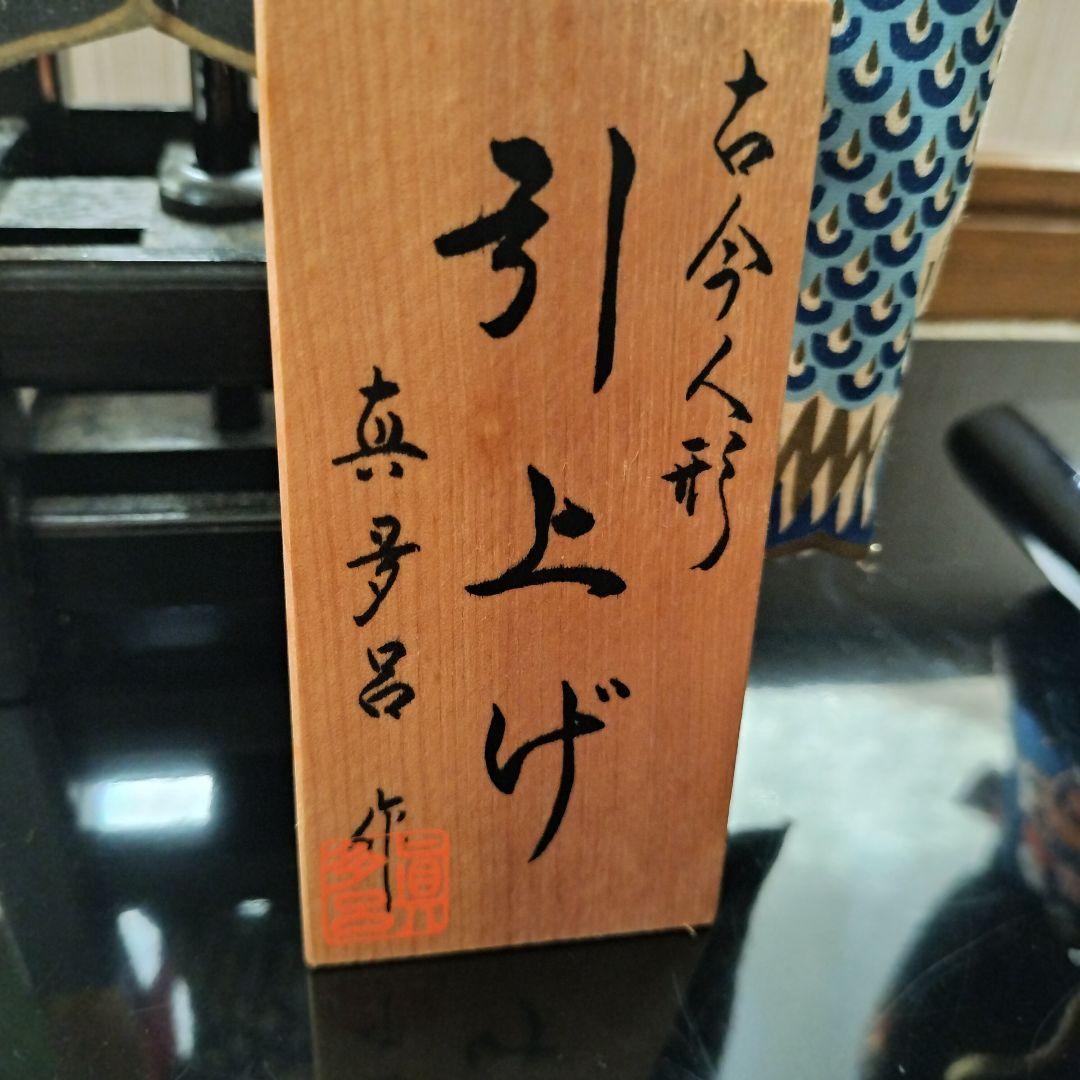 古今人形
引上げ
真多呂作
真多呂